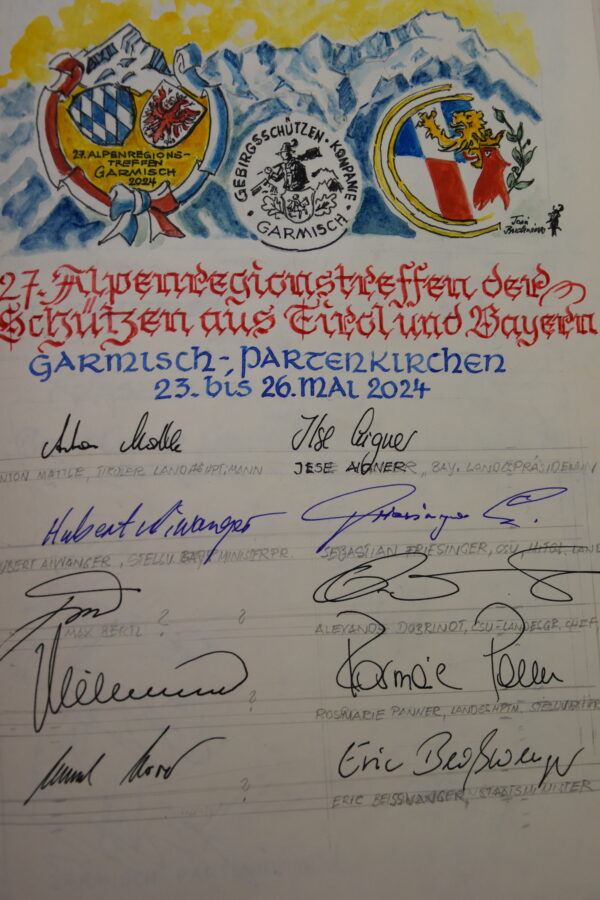 27. ALPENREGIONS-
TREFFEN
GARMISCH
2024
GEBIRGSSCHÜTZEN-KOMPANIE
• GARMISCH •
27. Alpenregionstreffen der
Schützen aus Tirol und Bayern
GARMISCH-, PARTENKIRCHEN
23. bis 26. MAI 2024
Ilse Aigner
NTON MATTLE, TIROLER LANDHAUPTMANN
JESE AIGNER, BAY. LANDESPRÄSIDENTIN
Hubert Aiwanger
UBERT AIWANGER, STELLV. BAY. MINISTERPR.
SEBASTIAN FRIESINGER, CSU, MITGL. LAND
MAX BERTL ? ?
ALEXANDER DOBRINDT, CSU-LANDESGR. CHEF,
?
ROSMARIE PANNER, LANDESHPTM. STELLV.
Eric Beißwenger
?
ERIC BEISSWANGER, STAATSMINISTER